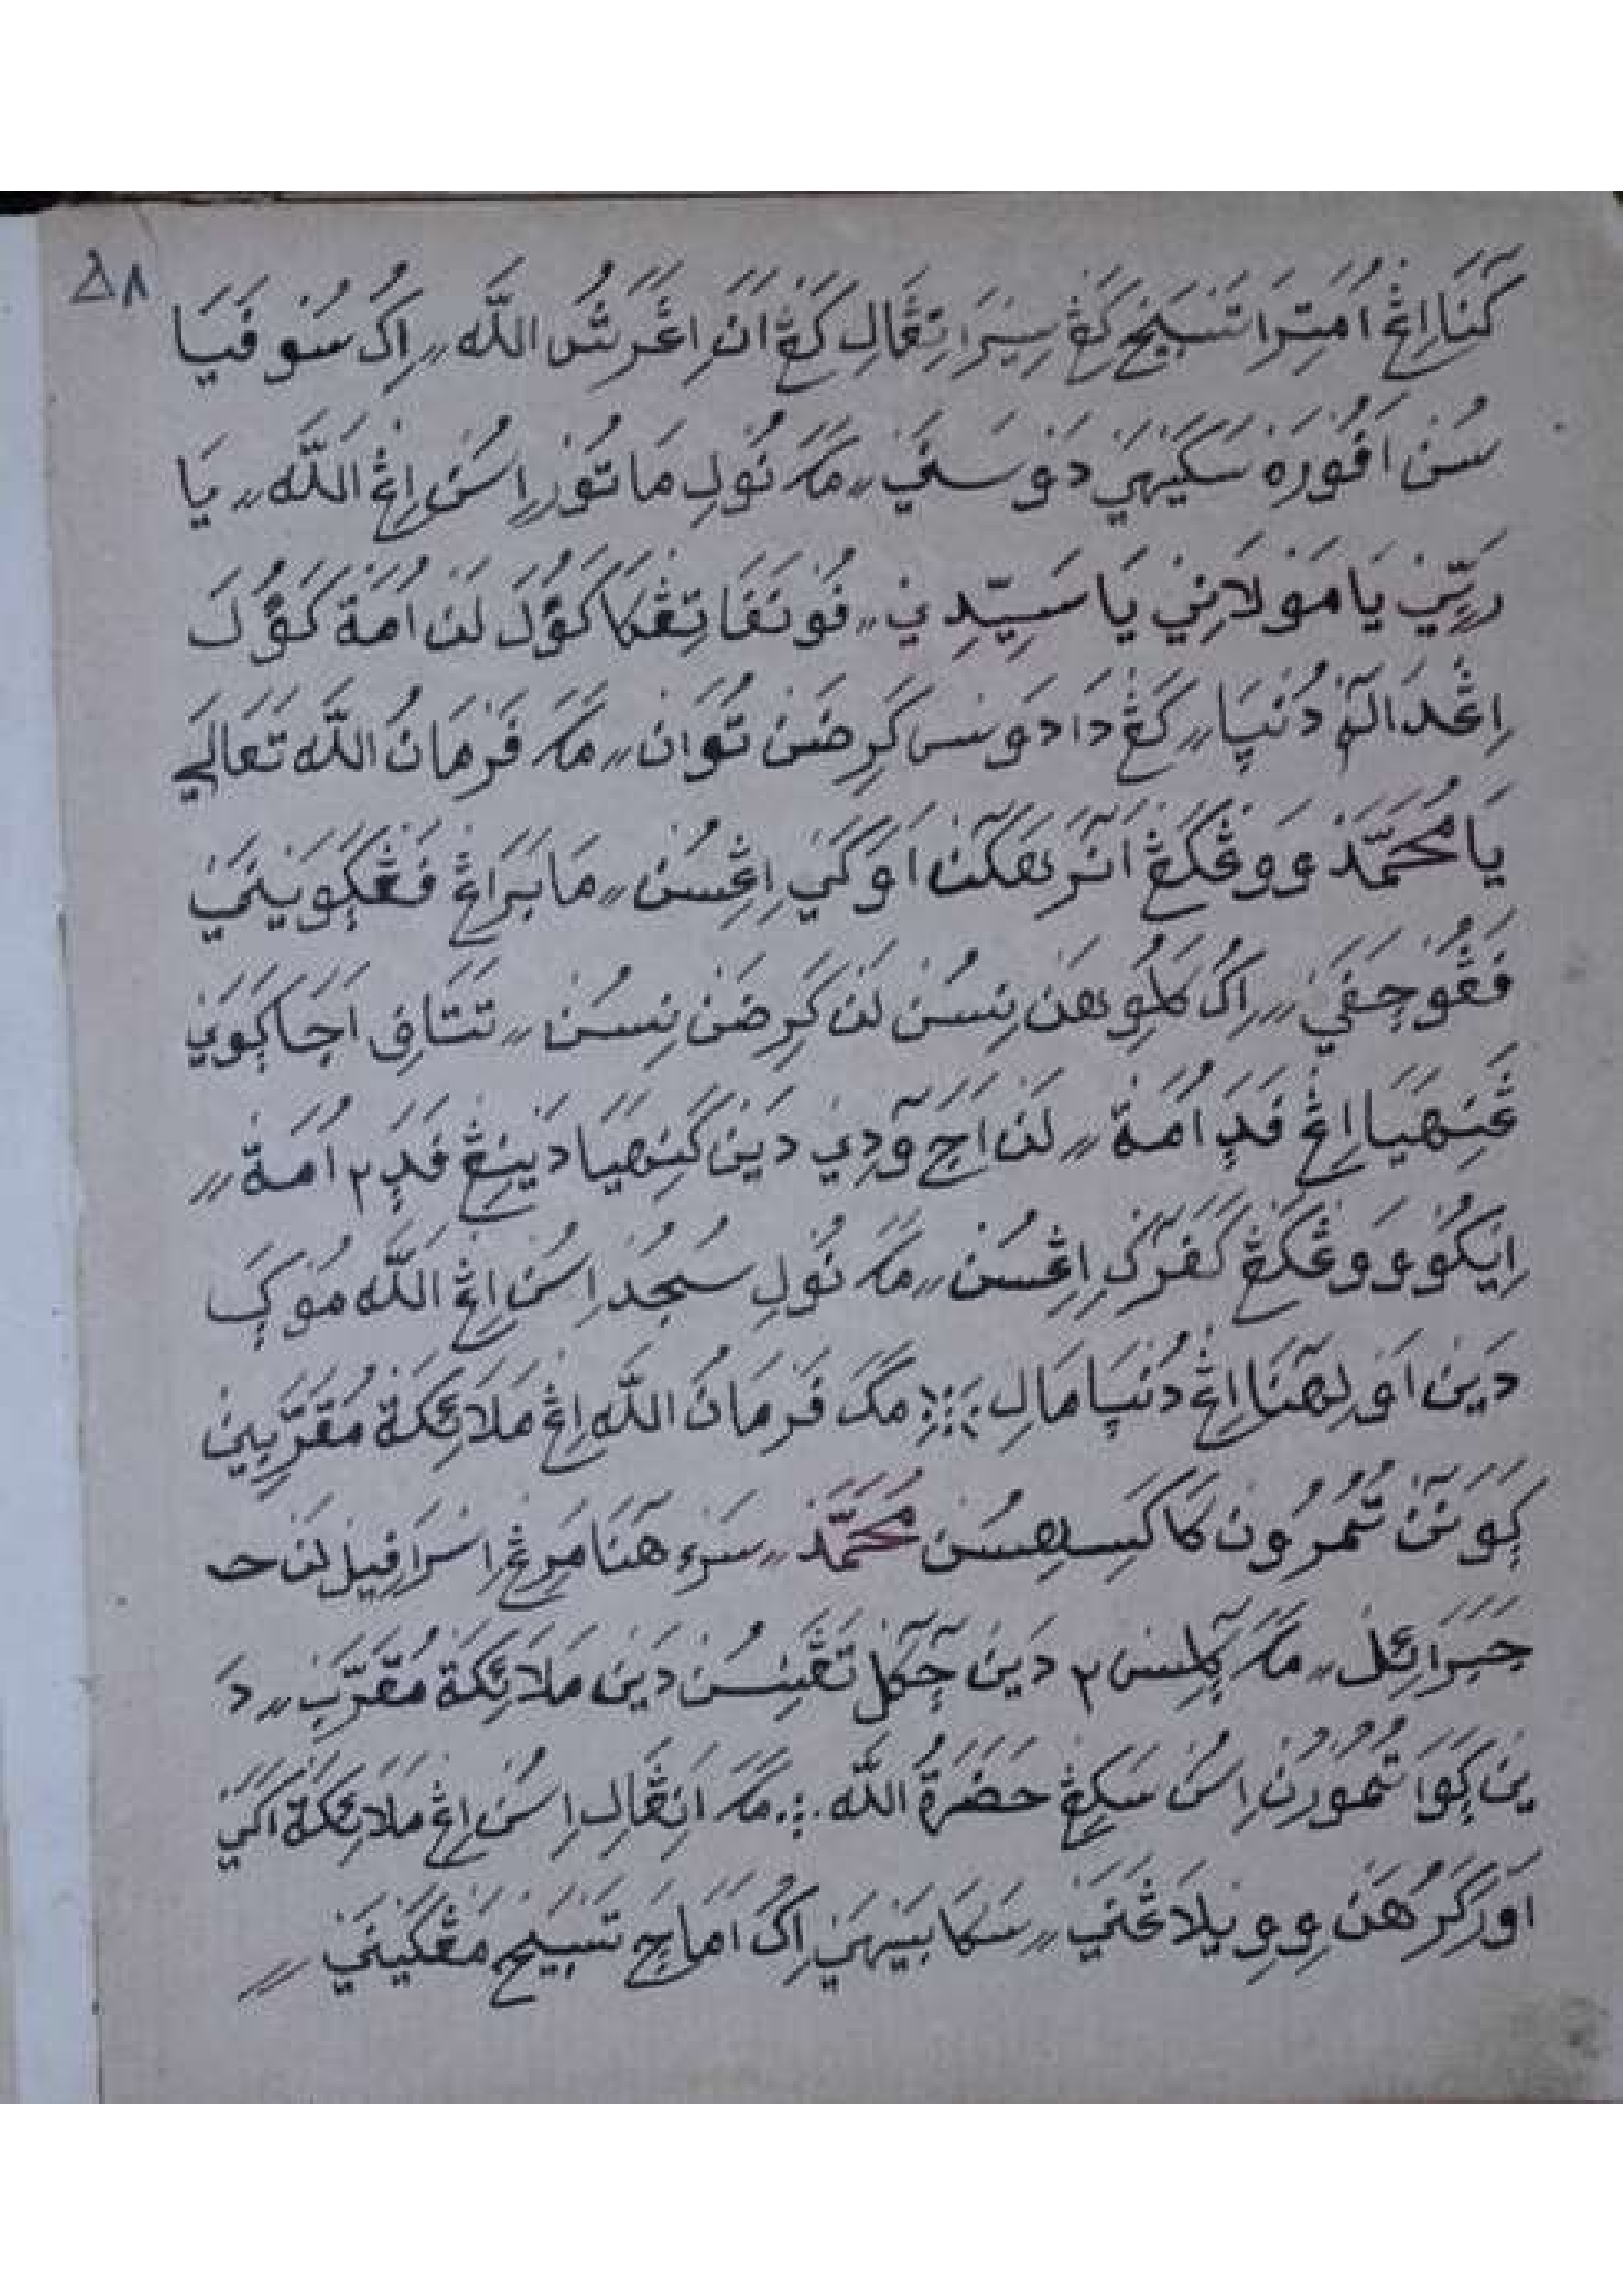 ٥٨
كَنَا اِڠ اُمَتِرَا تَسْبِيْح كَڠْ سِيْرَا تِڠَالِ كَڠْ اَنَ اِڠْ عَرَشُ اللّٰه ،، اِكُ سُوفَيَا
سُن اَفُوْرَهْ سَكَيْهَيْ دَوْسَنَيْ ،، مَكَ نُوْلِ مَاتُوْر اِسُن اِڠْ اللّٰه ،، يَا
رَبِّيْ يَا مَوْلَانِيْ يَا سَيِّدِيْ ،، فُونَفَا تِڠْكَا كَوُلَ لَن اُمَة كَوُلَ
اِڠْدَالٓمْ دُنْيَا ،، كَڠْ دَادَوْس كَرِضَن تُوَان ،، مَكَ فَرْمَانُ اللّٰه تَعَالَى
يَا مُحَمَّدْ وَوڠْكَڠْ اَنٓرِيمَكٓن اَوَكَيْ اِڠْسُن ،، مَا بَرَاڠْ فَڠْكَوَيْنَيْ
فَڠُوْجَفَيْ ،، اِكُ كَلُوِيهَن نِڠسُن لَن كَرِضَن نِڠسُن ،، تَتَافِى اَجَا كَوَيْ
ڠَنِهَيَا اِڠْ فَدَ اُمَة ،، لَن اَجَ وٓدِيْ دَيْن كَنِهَيَا دَيْنِڠْ فَدَ ٢ اُمَة ،،
اِيْكُوْ وَوڠْكَڠْ كَفَرٓكْ اِڠْسُن ،، مَكَ نُوْلِ سُجُدْ اِسُن اِڠْ اللّٰه مُوْكَ
دَيْن اَوْلِهْنَا اِڠْ دُنْيَا مَالِ ؞ مَكَ فَرْمَانُ اللّٰه اِڠْ مَلَائِكَة مُقَرَّبِيْن
كَوَنٓن تُمُرُون كَاكَسِهِسُن مُحَمَّدْ ،، سَرْة هَنَا مَرِڠْ اِسْرَافِيْل لَن جـ
جَبَرَائِل ،، مَكَ كٓلِس ٢ دَيْن جٓكَل تَڠَنِسُن دَيْن مَلَائِكَة مُقَرَّبْ ،، دَ
يْن كَوَا تُمُوْرُن اِسُن سَكِڠْ حَضْرَةُ اللّٰه ؞ مَكَ اَنِڠَالِ اِسُن اِڠْ مَلَائِكَة اَكَيْ
اَوْرَ كَرُهَن وِوِيْلَاڠَنَيْ ،، سَكَابَيْهَيْ اِكُ اَمَاجَ تَسْبِيْح مَڠْكَيْنَيْ ،،